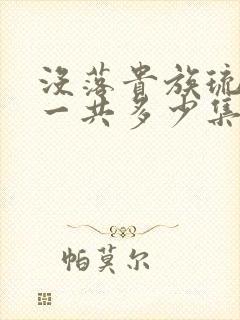 没落貴族琉
一共多少集
帕莫尔